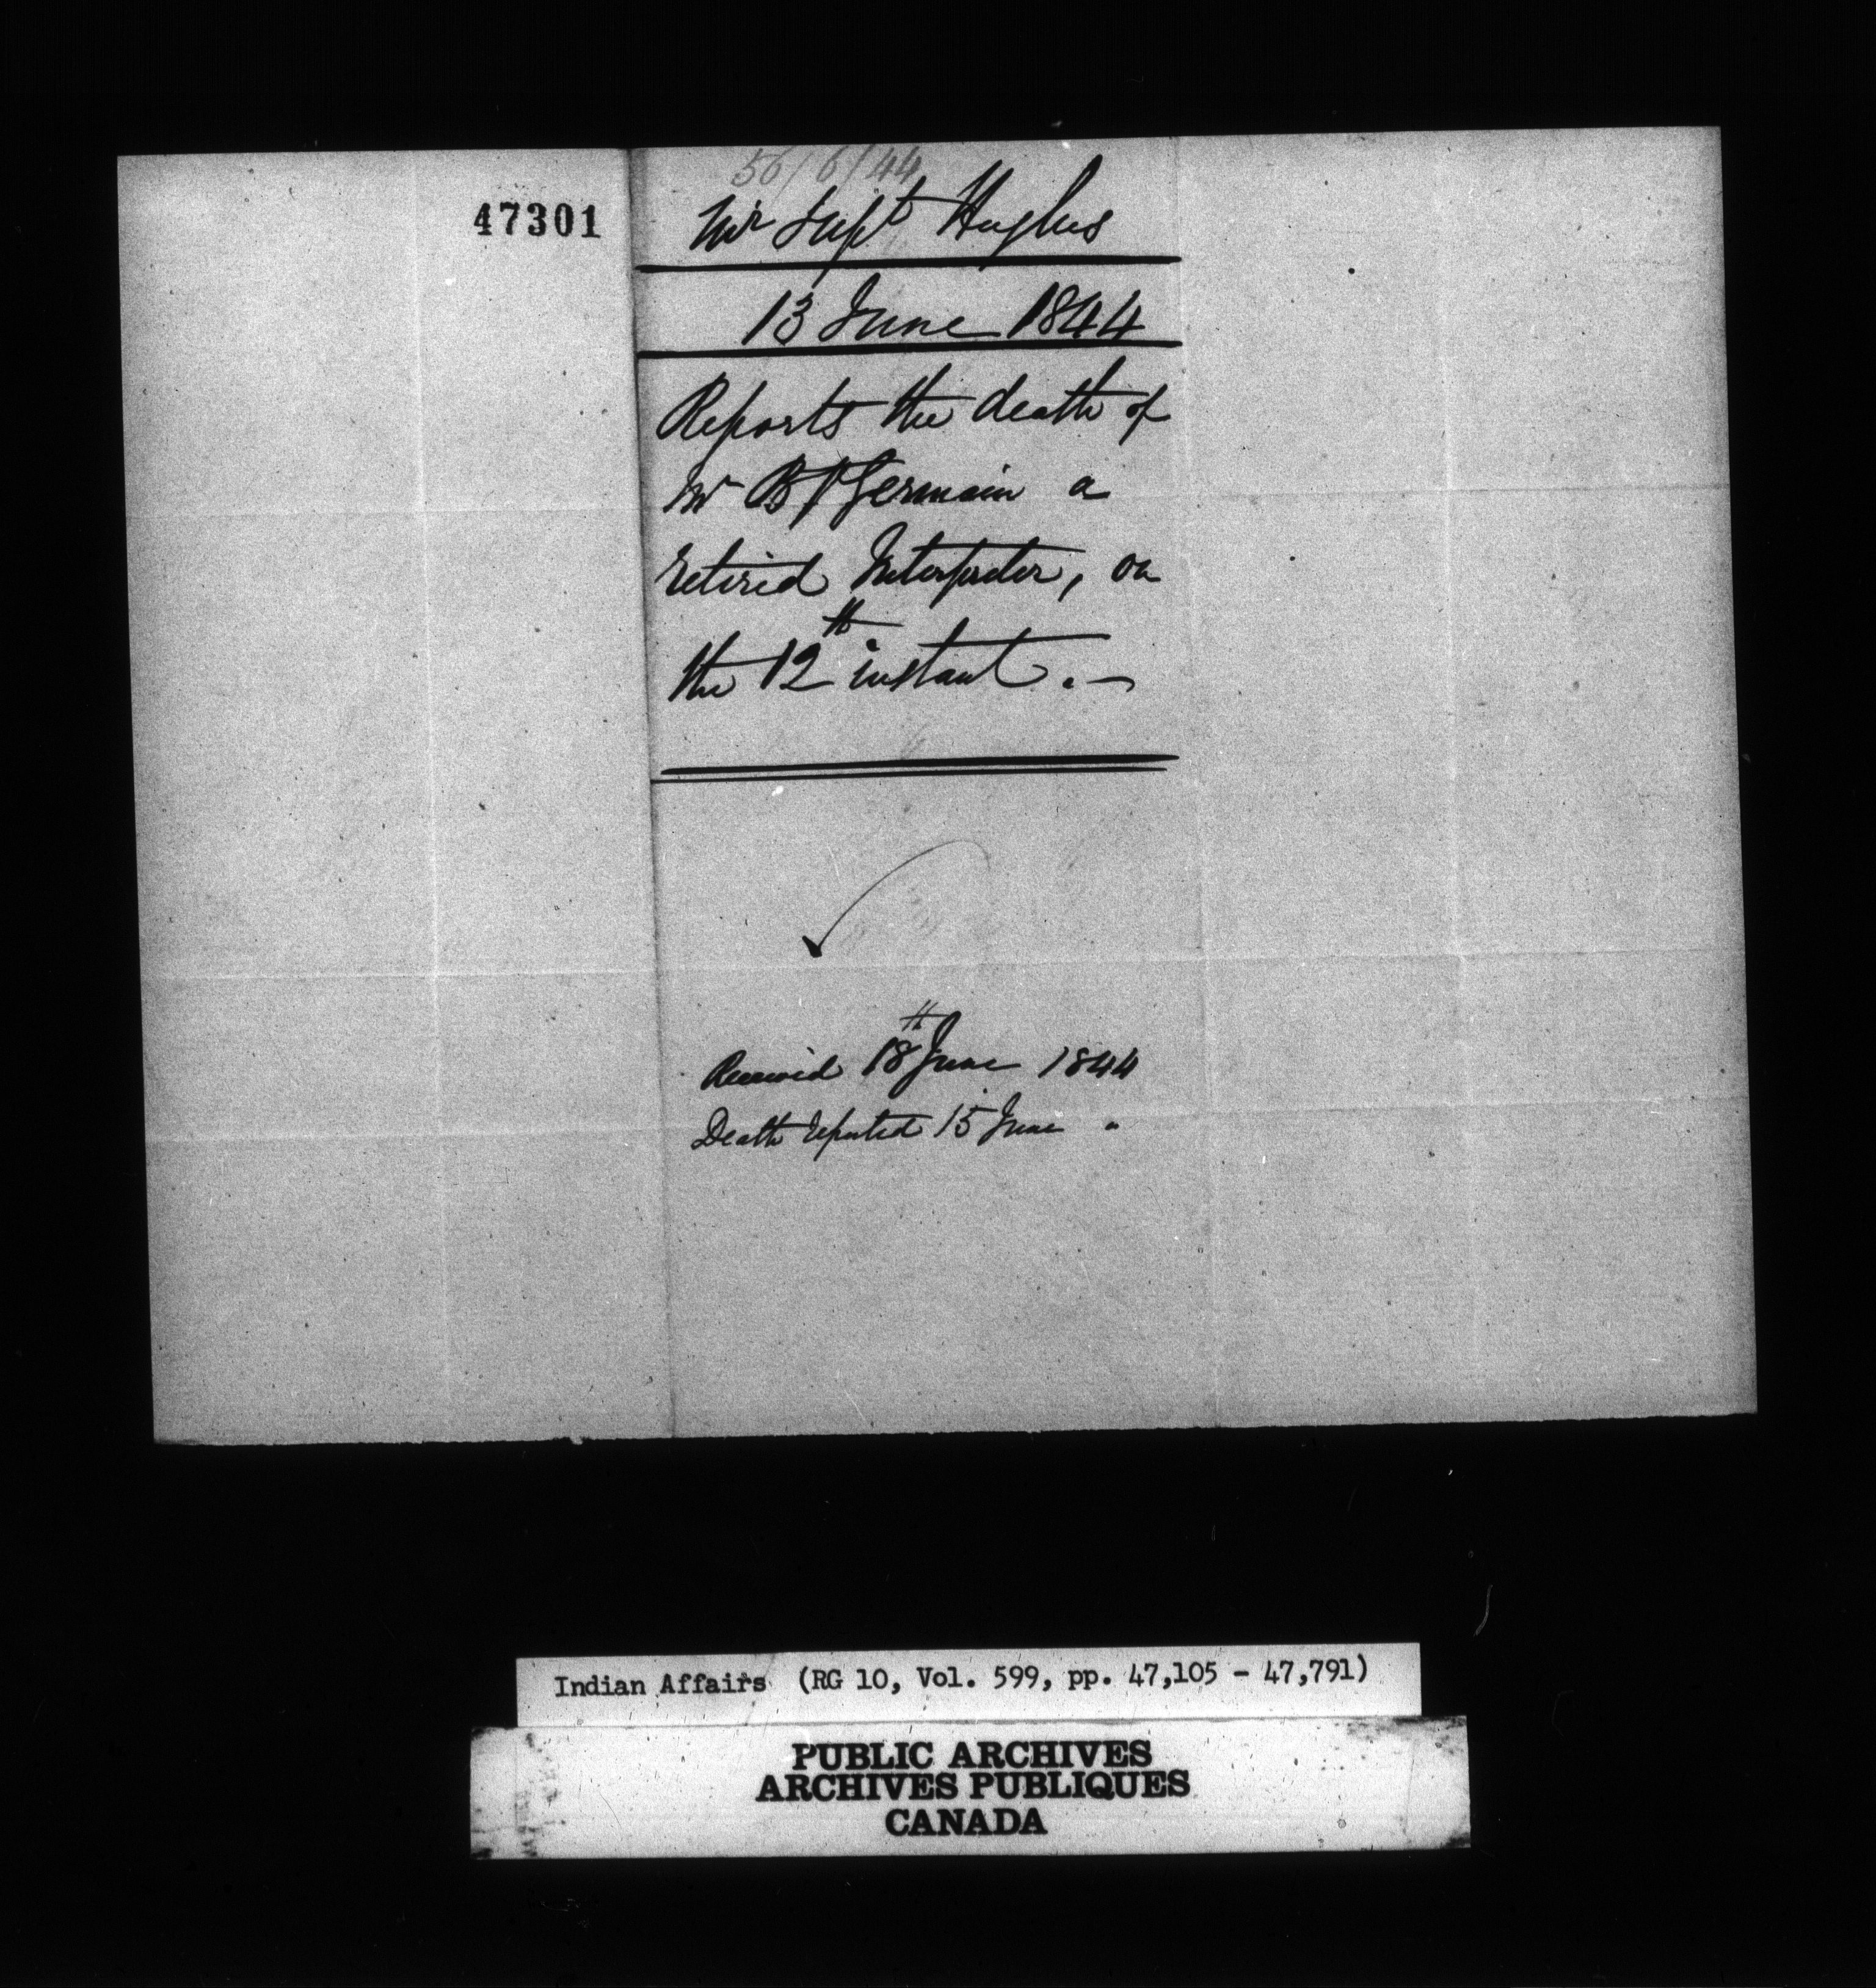 47301
56/6/44
Mr Supt Hughes
13 June 1844
Reports the death of
Mr B St Germain a
retired Interpreter, on
the 12th instant. —
Received 18th June 1844
Death reported 15 June "
Indian Affairs (RG 10, Vol. 599, pp. 47,105 - 47,791)
PUBLIC ARCHIVES
ARCHIVES PUBLIQUES
CANADA